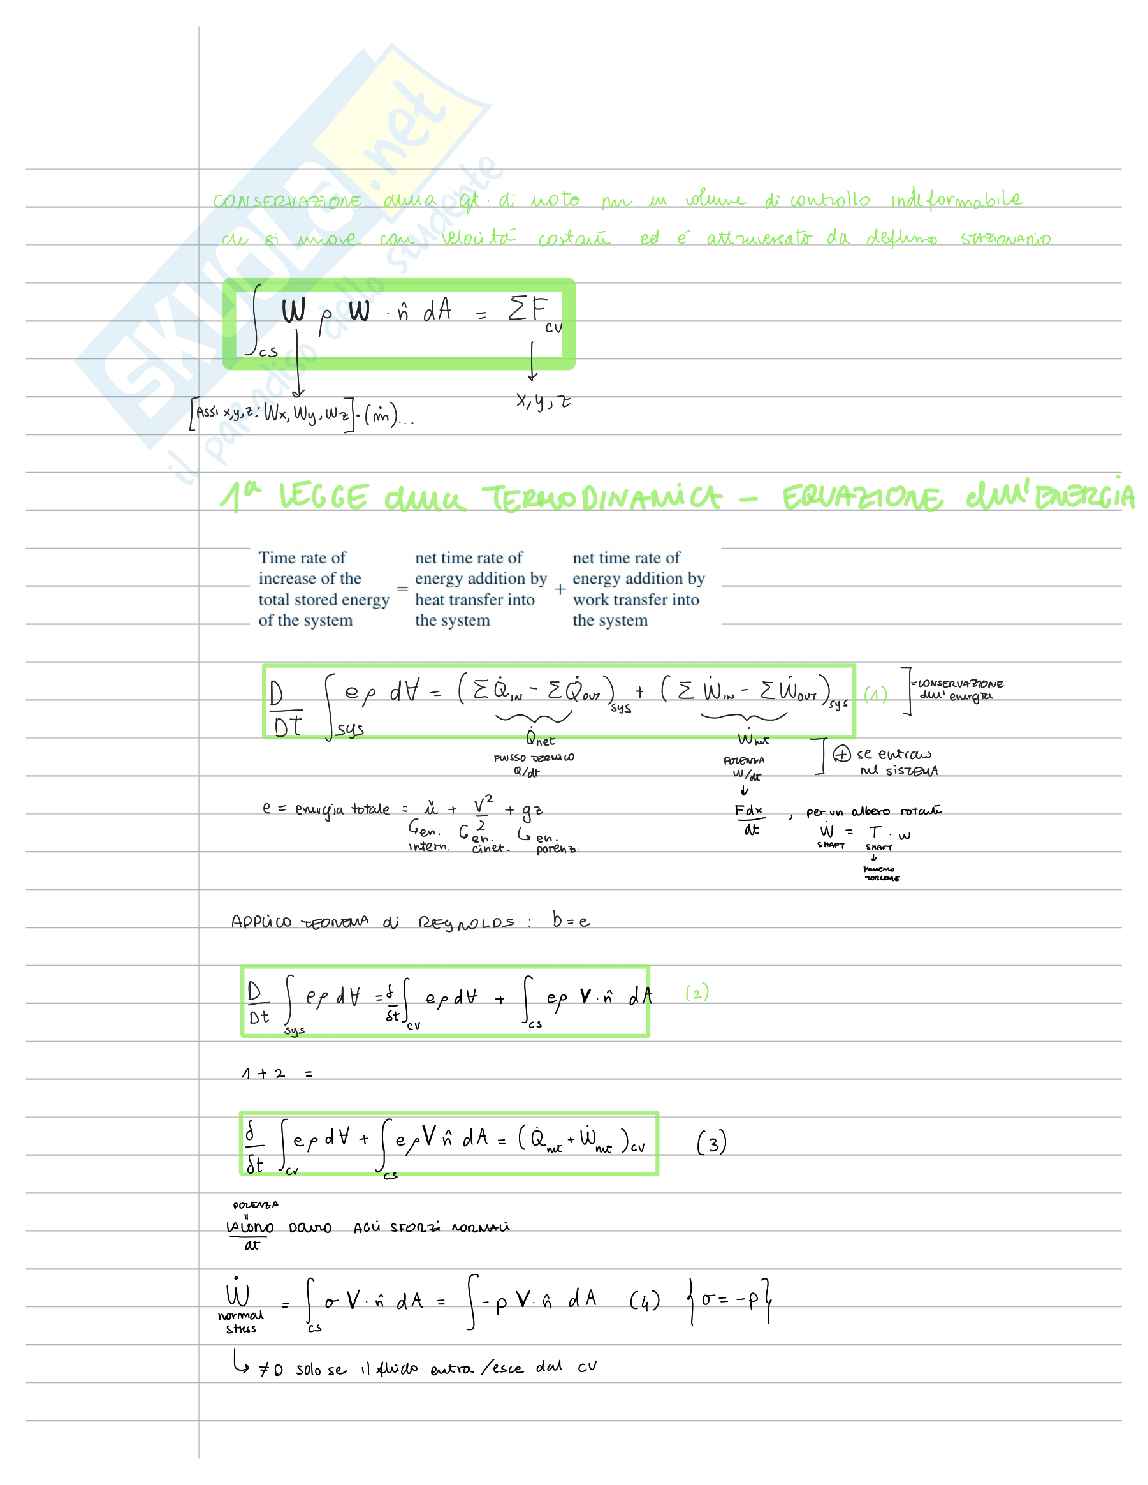 SKUOLA.net
il paradiso dello studente
CONSERVAZIONE della qt. di moto per un volume di controllo indeformabile
che si muove con velocità costante ed è attraversato da deflusso STAZIONARIO
∫_CS W ρ W · n̂ dA = ΣF_CV
[Assi x,y,z: Wx, Wy, Wz] · (ṁ)...
x, y, z
1ª LEGGE della TERMODINAMICA – EQUAZIONE dell'ENERGIA
Time rate of increase of the total stored energy of the system = net time rate of energy addition by heat transfer into the system + net time rate of energy addition by work transfer into the system
D/Dt ∫_sys eρ dV = (ΣQ̇_IN − ΣQ̇_OUT)_sys + (ΣẆ_IN − ΣẆ_OUT)_sys (1) ] → CONSERVAZIONE dell'energia
Q̇net
FLUSSO TERMICO
Q/dt
Ẇnet
POTENZA
W/dt
] ⊕ se entrano nel SISTEMA
e = energia totale = ǔ + V²/2 + gz
en. intern.
en. cinet.
en. potenz.
Fdx/dt , per un albero rotante
Ẇ_SHAFT = T_SHAFT · w
MOMENTO TORCENTE
APPLICO TEOREMA di REYNOLDS : b=e
D/Dt ∫_sys eρ dV = δ/δt ∫_CV eρ dV + ∫_CS eρ V · n̂ dA (2)
1 + 2 =
δ/δt ∫_CV eρ dV + ∫_CS eρ V n̂ dA = (Q̇net + Ẇnet)_CV (3)
POTENZA
"
LAVORO/dt DOVUTO AGLI SFORZI NORMALI
Ẇ_normal stress = ∫_CS σ V · n̂ dA = ∫ -p V · n̂ dA (4) {σ = -p}
↳ ≠0 solo se il fluido entra/esce dal CV